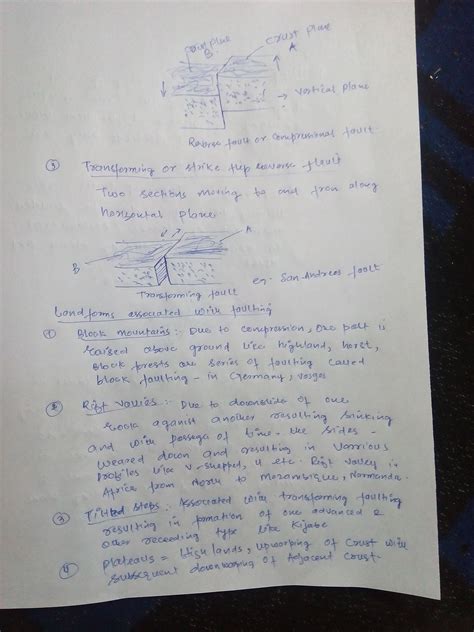 Crust plane
B
A
→ vertical plane
Reverse fault or compressional fault
③ Transforming or strike slip reverse fault
Two sections moving to and from along
horizontal plane
A
B
eg- San-Andreas fault
Transforming fault
Landforms associated with faulting
① Block mountains:- Due to compression, one part is
raised above ground like highland, horst,
Block are series of faulting called
block faulting - in Germany, vosges
② Rift vallies:- Due to of one
rock against another resulting sinking
and with passage of time - the sides -
weared down and resulting in varrious
profiles like v-shaped, u etc. Rift valley in
Africa from north to Mozambique,
③ Tilted steps:- Associated with transforming faulting
resulting in formation of one advanced &
other receeding type like
④ Plateaus = High lands, upworking of crust with
subsequent downwarping of Adjacent Crust-